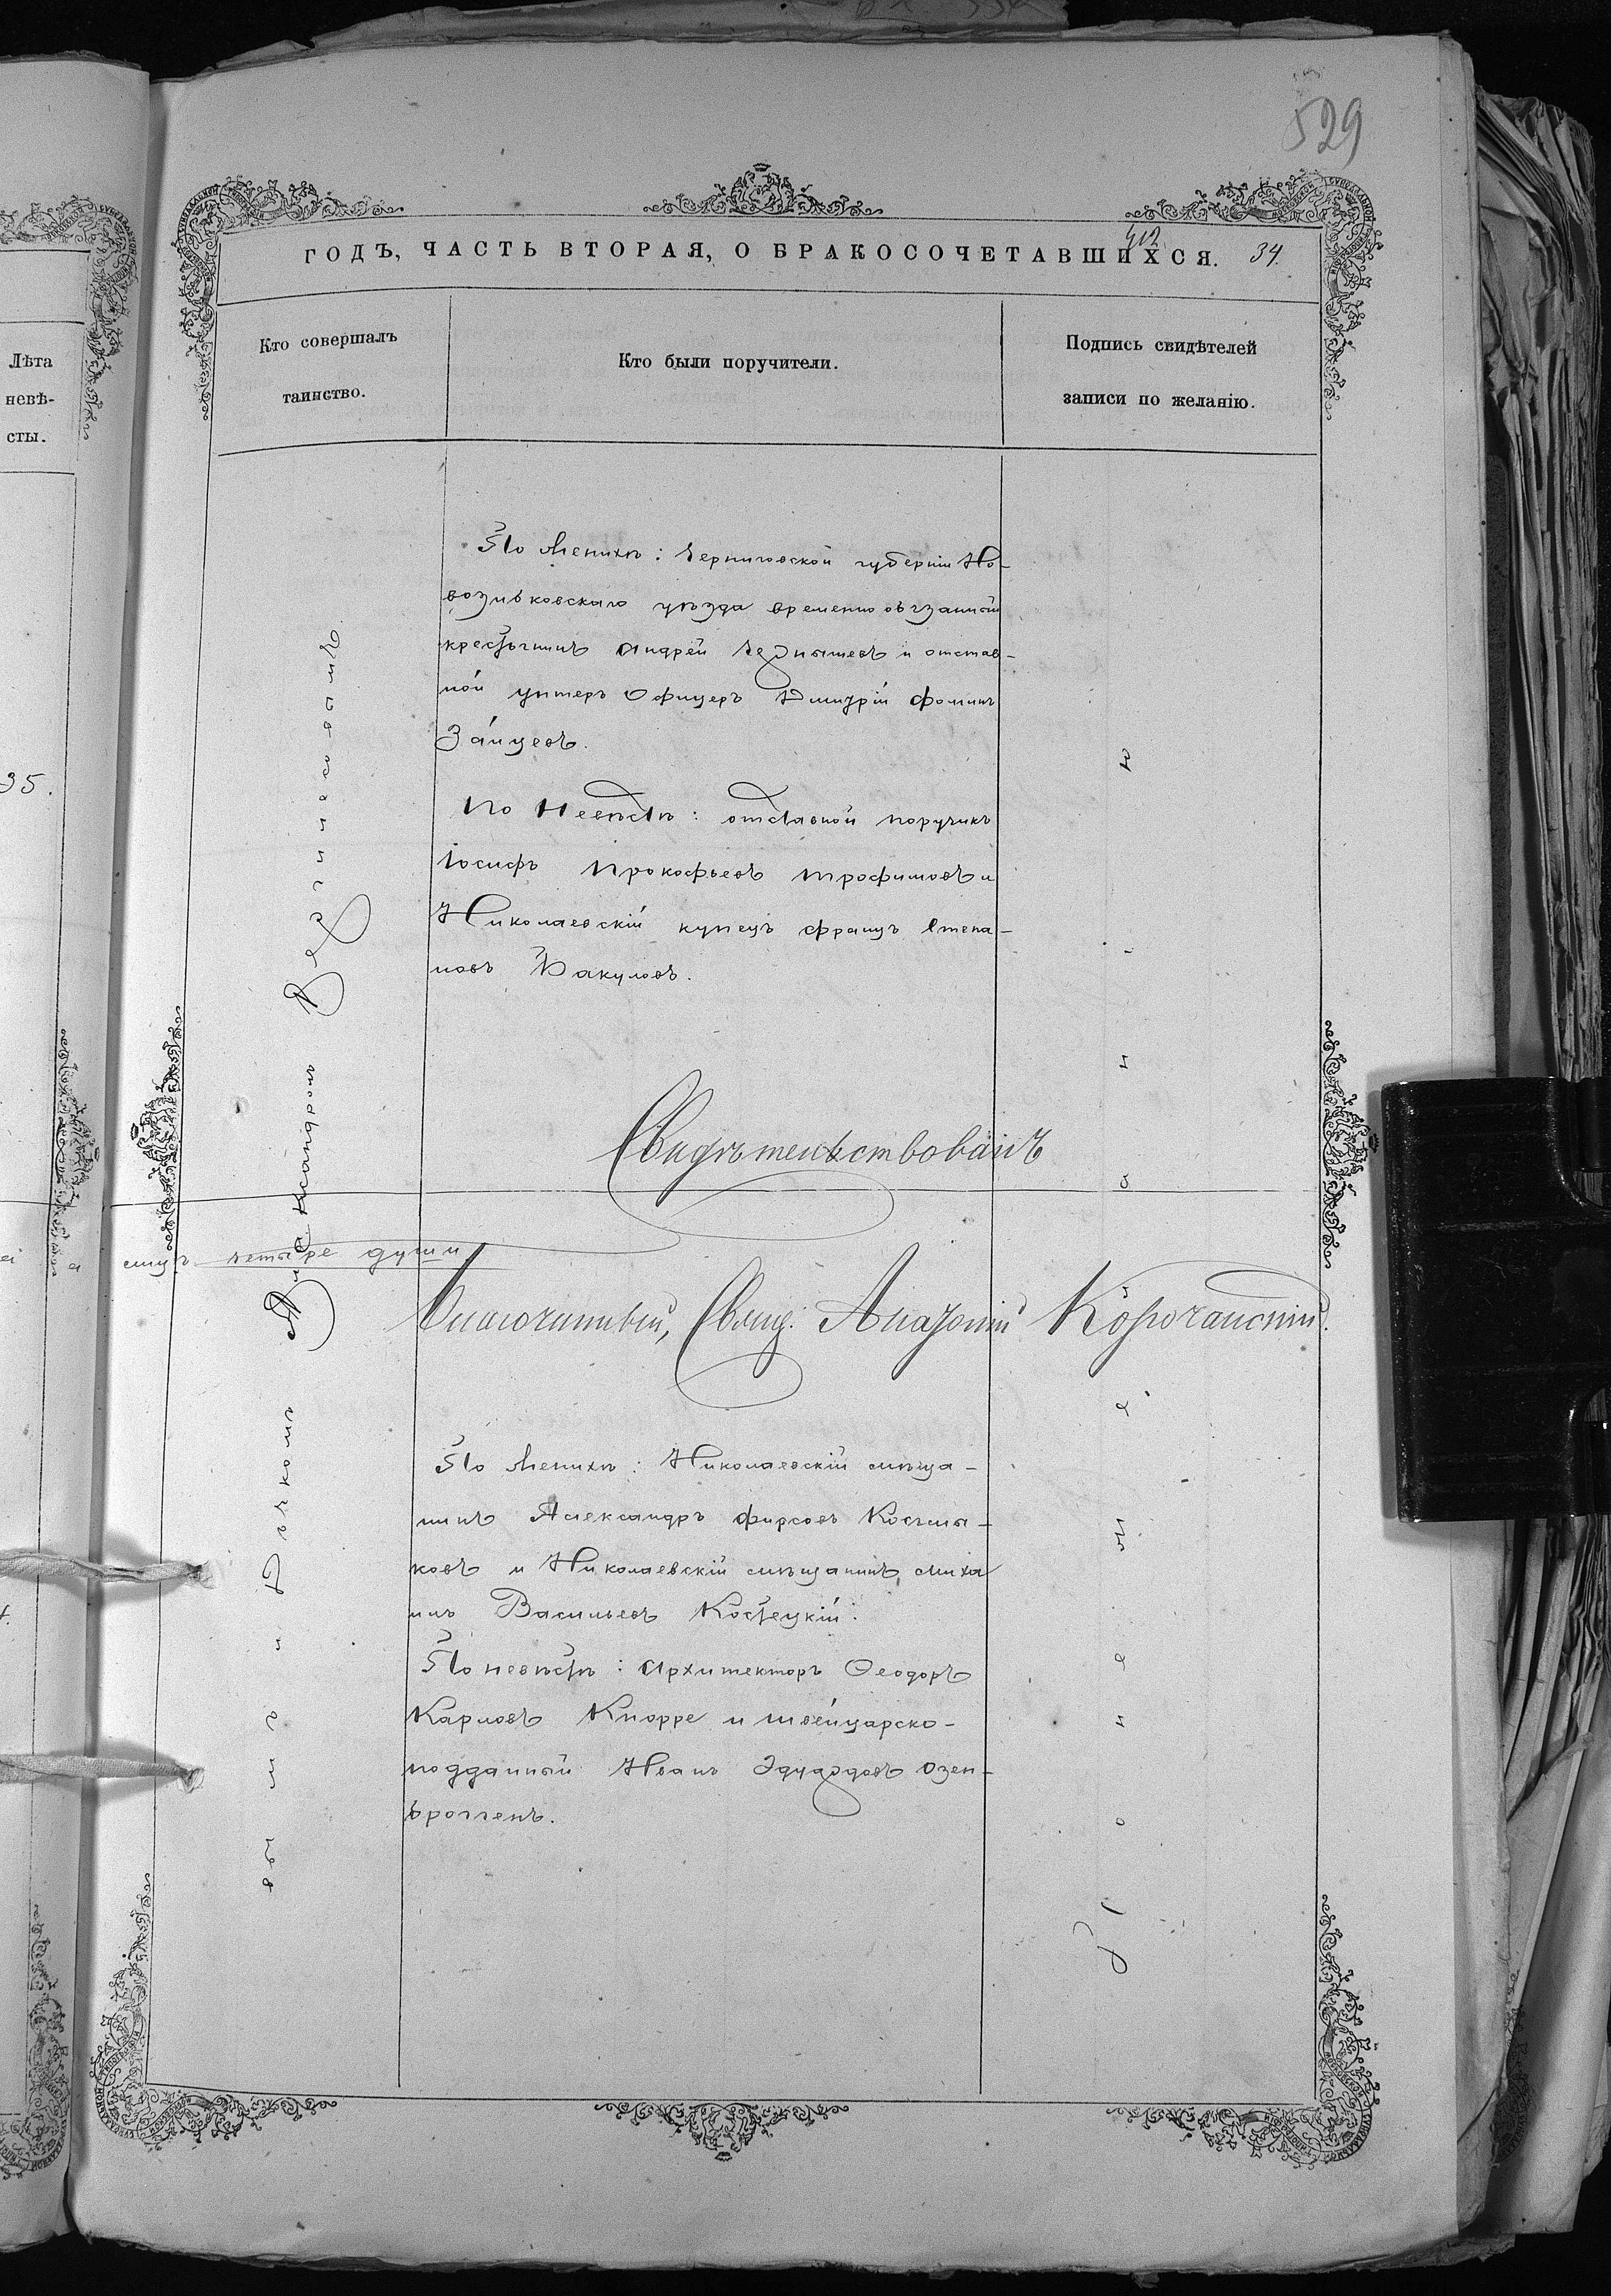 529
ГОДЪ, ЧАСТЬ ВТОРАЯ, О БРАКОСОЧЕТАВШИХСЯ.
412
34.
Лѣта
невѣ-
сты.
Кто совершалъ
таинство.
Кто были поручители.
Подпись свидѣтелей
записи по желанію.
35.
По женихѣ: Черниговской губерніи Но-
возыбковскаго уѣзда временно обязанный
крестьянинъ Андрей Чернышевъ и отстав-
ной унтеръ Офицеръ Дмитрій Фоминъ
Зайцевъ.
По Невѣстѣ: отставной поручикъ
Іосифъ Прокофьевъ Трофимовъ и
Николаевскій купецъ Францъ Степа-
новъ Вакуловъ.
Свидѣтельствовалъ
сихъ четыре души
Благочинный, Свящ. Анатолій Корочанскій.
По женихѣ: Николаевскій мѣща-
нинъ Александръ Фирсовъ Косьмы-
ковъ и Николаевскій мѣщанинъ Миха
илъ Васильевъ Костецкій.
По невѣстѣ: Архитекторъ Ѳеодоръ
Карловъ Кнорре и швейцарско-
подданный Иванъ Эдуардовъ Озен-
бропенъ.
Александромъ